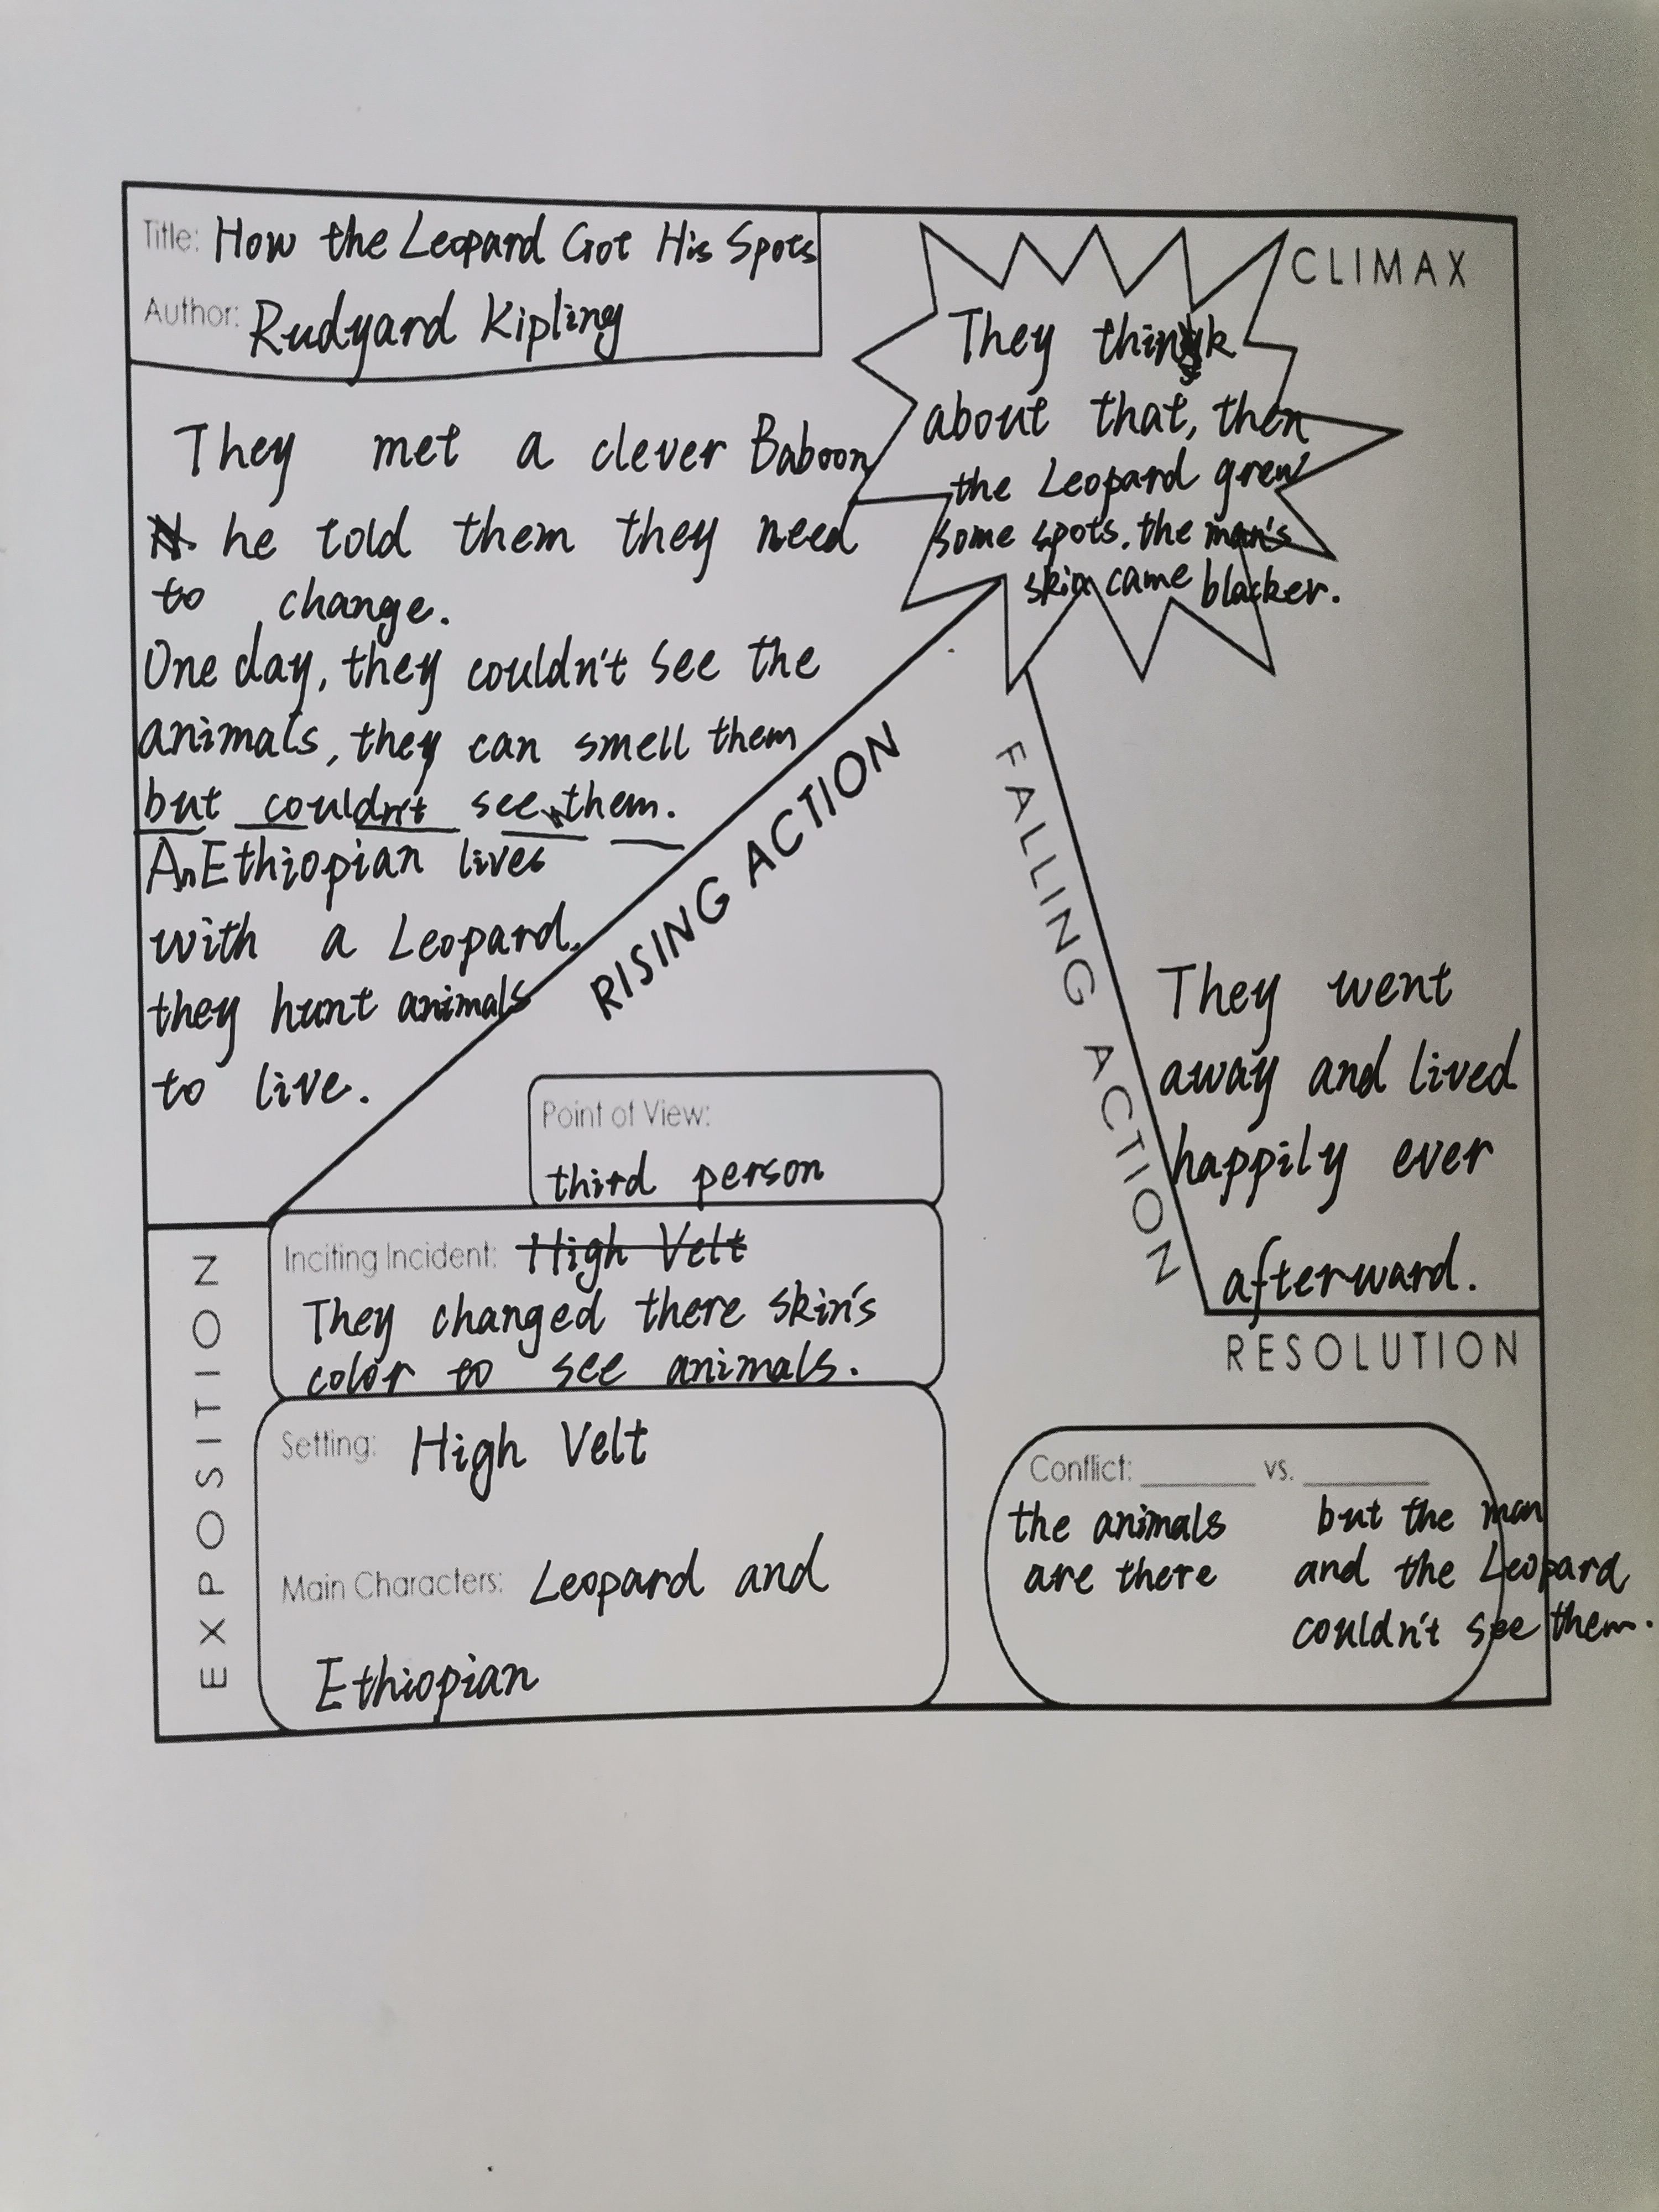 Title: How the Leopard Got His Spots
Author: Rudyard Kipling
CLIMAX
They think
about that, then
the Leopard grew
some spots. the man's
skin came blacker.
They met a clever Baboon
he told them they need
to change.
One day, they couldn't see the
animals, they can smell them
but couldn't see them.
An Ethiopian lives
with a Leopard.
they hunt animals
to live.
RISING ACTION
FALLING ACTION
They went
away and lived
happily ever
afterward.
RESOLUTION
Point of View:
third person
EXPOSITION
Inciting Incident: High Velt
They changed there skin's
color to see animals.
Setting: High Velt
Main Characters: Leopard and
Ethiopian
Conflict: ________ vs. ________
the animals but the man
are there and the Leopard
couldn't see them.